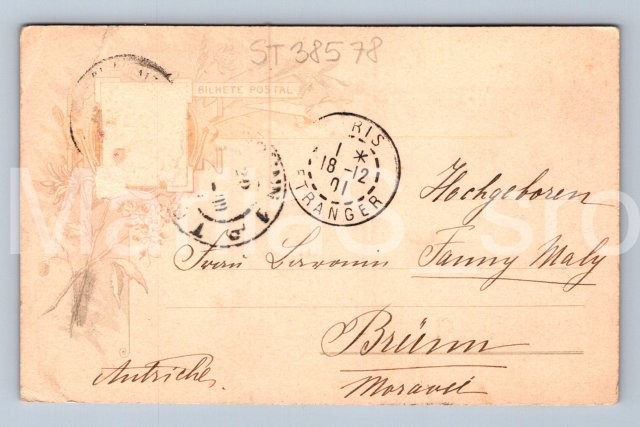 ST 38578
BILHETE POSTAL
RIS
1 *
18 -12
01
ETRANGER
Hochgeboren
Frau Baronin Fanny Maly
Brünn
Autriche.
Moravie